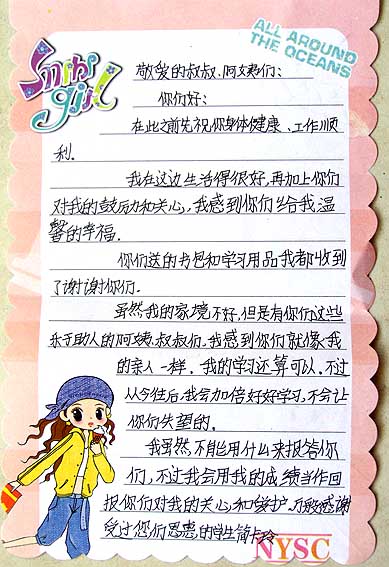 Smart girl
ALL AROUND
THE OCEANS
敬爱的叔叔、阿姨们:
你们好:
在此之前先祝你身体健康、工作顺
利.
我在这边生活得很好,再加上你们
对我的鼓励和关心,我感到你们给我温
馨的幸福.
你们送的书包和学习用品我都收到
了谢谢你们.
虽然我的家境不好,但是有你们这些
乐于助人的阿姨叔叔们.我感到你们就像我
的亲人一样.我的学习还算可以.不过
从今往后,我会加倍好好学习,不会让
你们失望的.
我虽然,不能用什么来报答你
们,不过我会用我的成绩当作回
报你们对我的关心和爱护.万般感谢
受过您们恩惠的学生简卡玲
NYSC